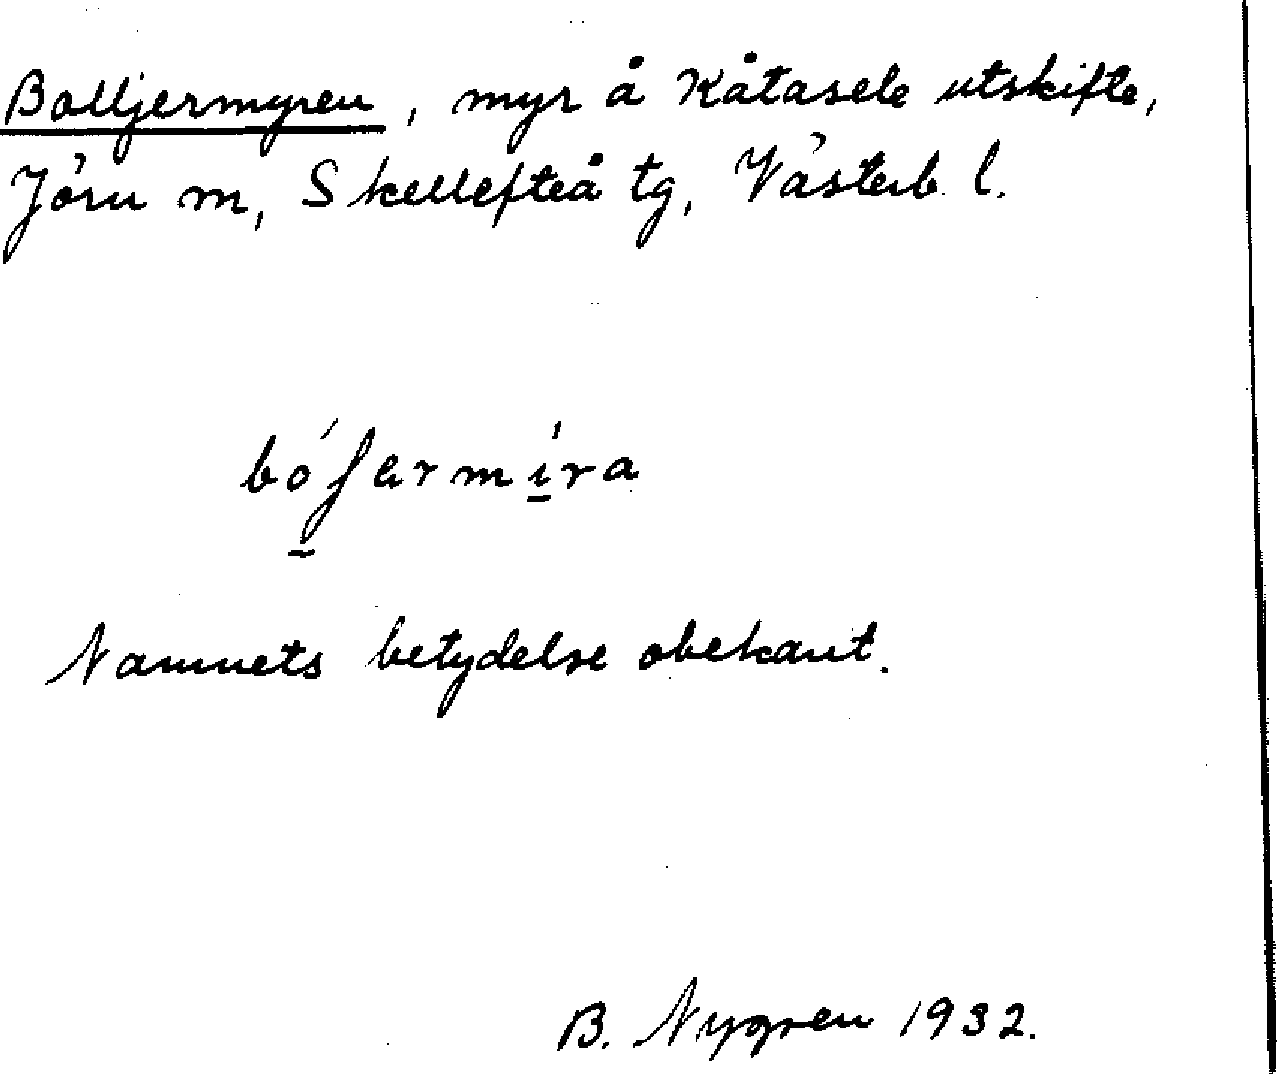 Bolljermyren, myr å Kåtasele utskifte,
Jörn m, Skellefteå tg, Västerb. l.
Namnets betydelse obekant.
B. Nygren 1932.